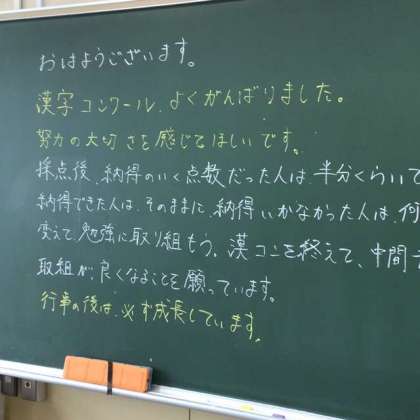 おはようございます。
漢字コンクール、よくがんばりました。
努力の大切さを感じてほしいです。
採点後、納得のいく点数だった人は、半分くらいで
納得できた人は、そのままに、納得いかなかった人は、何
変えて、勉強に取り組もう。漢コンを終えて、中間テ
取組が、良くなることを願っています。
行事の後は、必ず成長しています。